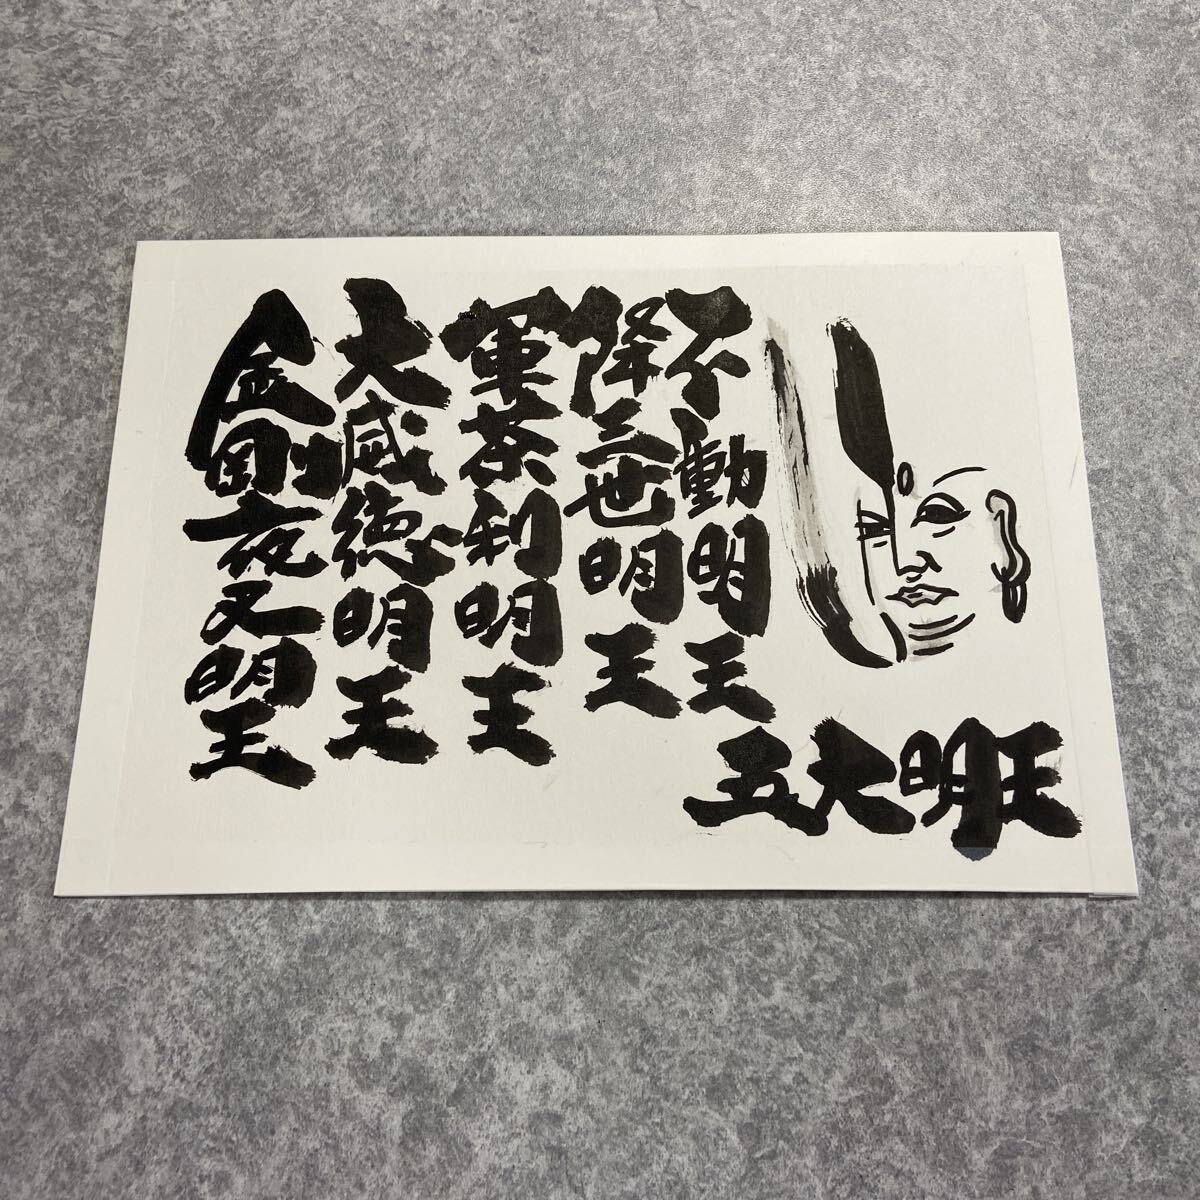 不動明王
降三世明王
軍茶利明王
大威徳明王
金剛夜叉明王
五大明王